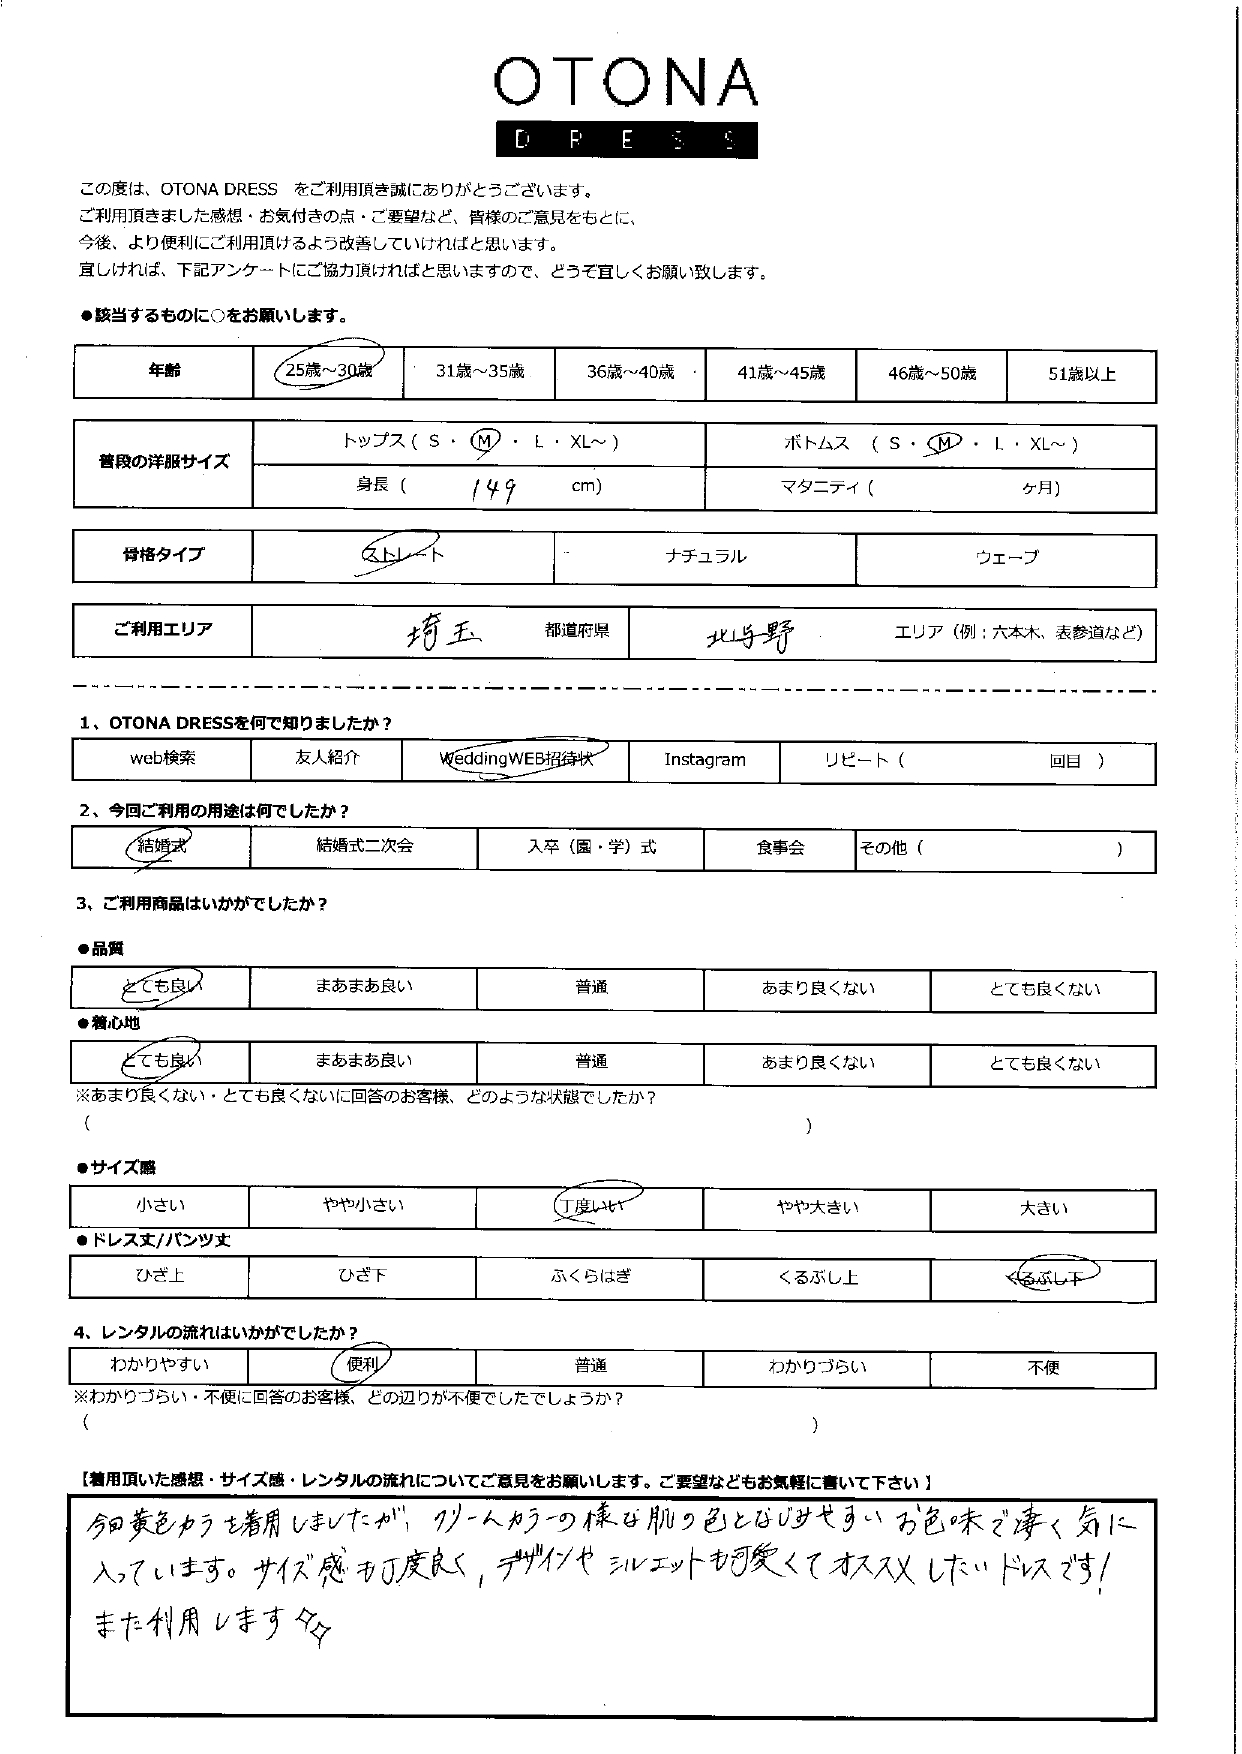 OTONA
DRESS
この度は、OTONA DRESS をご利用頂き誠にありがとうございます。
ご利用頂きました感想・お気付きの点・ご要望など、皆様のご意見をもとに、
今後、より便利にご利用頂けるよう改善していければと思います。
宜しければ、下記アンケートにご協力頂ければと思いますので、どうぞ宜しくお願い致します。
●該当するものに○をお願いします。
年齢 25歳～30歳 31歳～35歳 36歳～40歳 41歳～45歳 46歳～50歳 51歳以上
普段の洋服サイズ トップス ( S ・ M ・ L ・ XL～ ) ボトムス ( S ・ M ・ L ・ XL～ )
身長 ( 149 cm) マタニティ ( ケ月)
骨格タイプ ストレート ナチュラル ウェーブ
ご利用エリア 埼玉 都道府県 北与野 エリア（例：六本木、表参道など）
1、OTONA DRESSを何で知りましたか？
web検索 友人紹介 WeddingWEB招待状 Instagram リピート ( 回目 )
2、今回ご利用の用途は何でしたか？
結婚式 結婚式二次会 入卒（園・学）式 食事会 その他 ( )
3、ご利用商品はいかがでしたか？
●品質
とても良い まあまあ良い 普通 あまり良くない とても良くない
●着心地
とても良い まあまあ良い 普通 あまり良くない とても良くない
※あまり良くない・とても良くないに回答のお客様、どのような状態でしたか？
( )
●サイズ感
小さい やや小さい 丁度いい やや大きい 大きい
●ドレス丈/パンツ丈
ひざ上 ひざ下 ふくらはぎ くるぶし上 くるぶし下
4、レンタルの流れはいかがでしたか？
わかりやすい 便利 普通 わかりづらい 不便
※わかりづらい・不便に回答のお客様、どの辺りが不便でしたでしょうか？
( )
【着用頂いた感想・サイズ感・レンタルの流れについてご意見をお願いします。ご要望などもお気軽に書いて下さい】
今回黄色カラーを着用しましたが、クリームカラーの様な肌の色となじみやすいお色味で凄く気に
入っています。サイズ感も丁度良く、デザインやシルエットも可愛くてオススメしたいドレスです！
また利用します